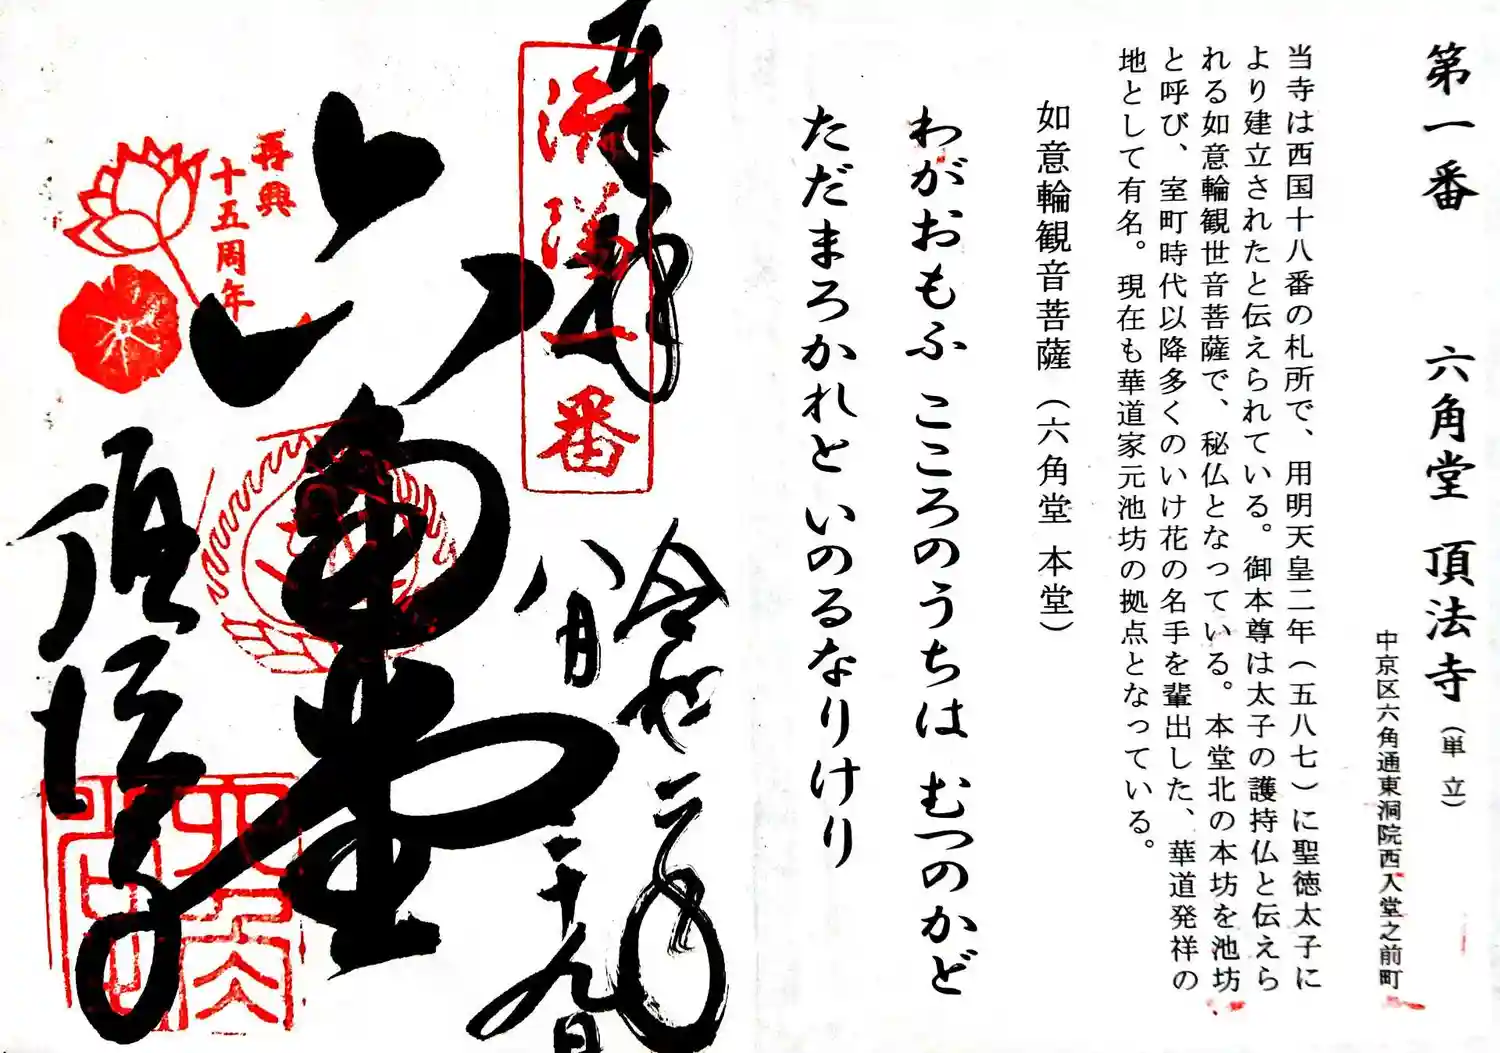 第一番 六角堂 頂法寺（単立）
中京区六角通東洞院西入堂之前町
当寺は西国十八番の札所で、用明天皇二年（五八七）に聖徳太子に
より建立されたと伝えられている。御本尊は太子の護持仏と伝えら
れる如意輪観世音菩薩で、秘仏となっている。本堂北の本坊を池坊
と呼び、室町時代以降多くのいけ花の名手を輩出した、華道発祥の
地として有名。現在も華道家元池坊の拠点となっている。
如意輪観音菩薩（六角堂 本堂）
わがおもふ こころのうちは むつのかど
ただまろかれと いのるなりけり
奉拝
洛陽一番
令和二年
八月二十九日
六角堂
再興
十五周年
頂法寺